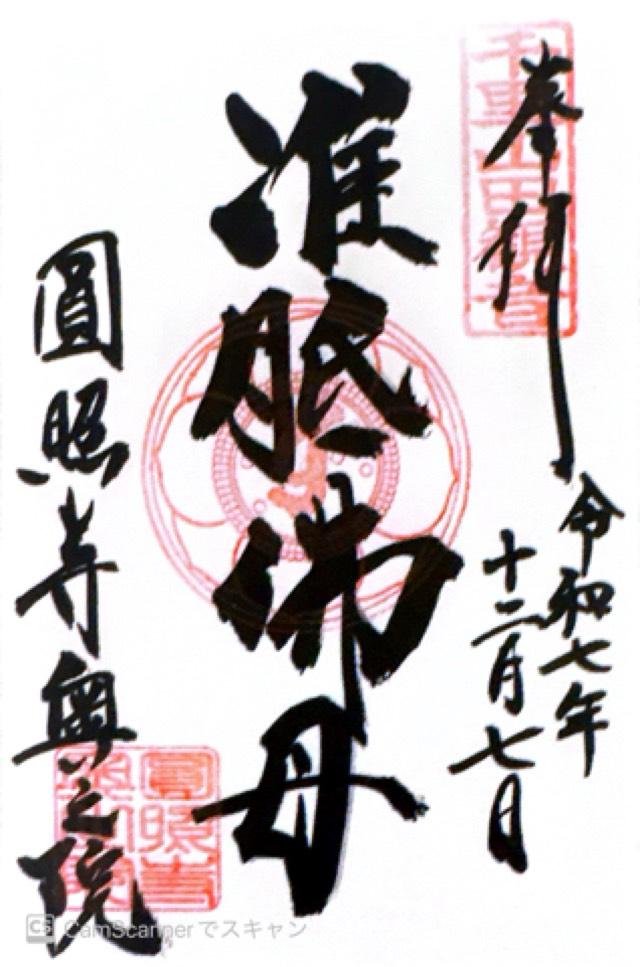 奉拝
令和七年
十二月七日
准胝佛母
圓照寺奥之院
圓照寺
奥之院
CS CamScannerでスキャン